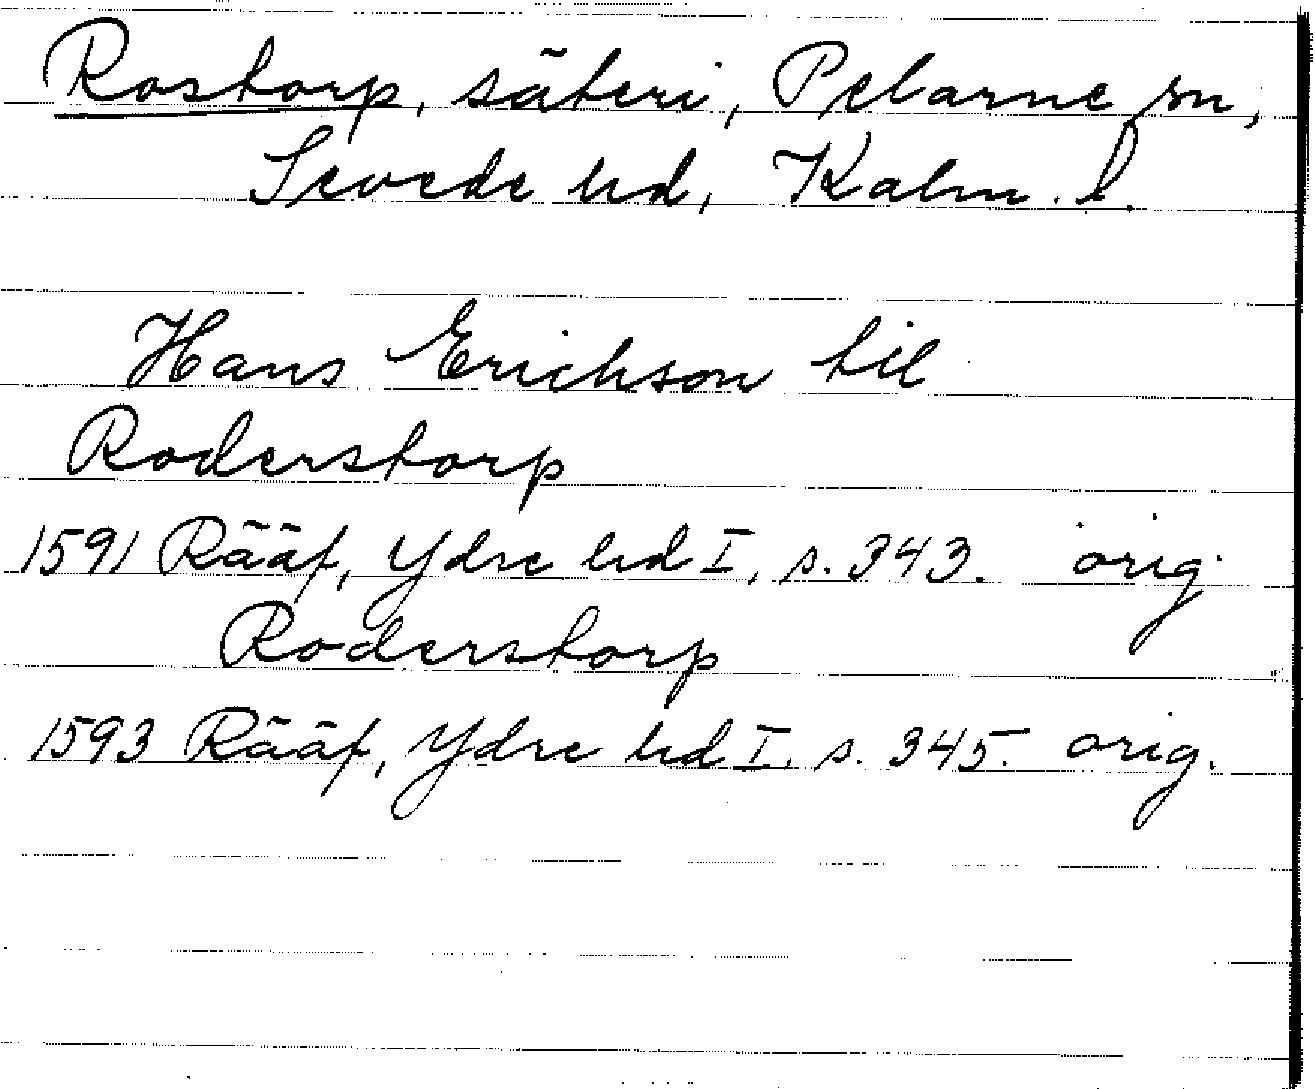 Rostorp, säteri, Pelarne sn,
Sevede hd, Kalm. l.
Hans Erichson til
Roderstorp
1591 Rääf, Ydre hd I, s. 343. orig.
Roderstorp
1593 Rääf, Ydre hd I. s. 345. orig.